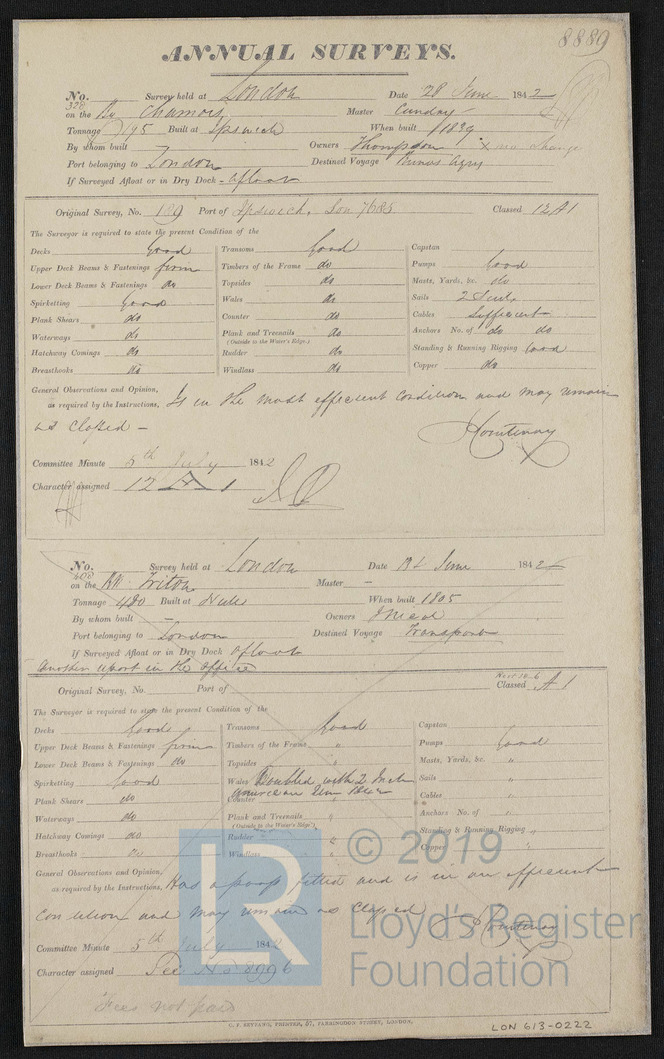 8889
ANNUAL SURVEYS.
No. 328 Survey held at London Date 28 June 1842
on the Chamois Master Cunday
Tonnage 195 Built at Ipswich When built 1839
By whom built Owners Thompson x no change
Port belonging to London Destined Voyage
If Surveyed Afloat or in Dry Dock - afloat
Original Survey, No. 189 Port of Ipswich, Lon 7685 Classed 12 A1
The Surveyor is required to state the present Condition of the
Decks Good Transoms Good Capstan
Upper Deck Beams & Fastenings from Timbers of the Frame do Pumps Good
Lower Deck Beams & Fastenings do Topsides do Masts, Yards, &c. do
Spirketting Good Wales do Sails 2 Suits
Plank Shears do Counter do Cables Sufficient
Waterways do Plank and Treenails do Anchors No. of do do
(Outside to the Water's Edge.)
Hatchway Comings do Rudder do Standing & Running Rigging Good
Breasthooks do Windlass do Copper do
General Observations and Opinion,
as required by the Instructions, Is in the most efficient Condition and may remain
as Classed -
Courtenay
Committee Minute 5th July 1842
Character assigned 12 A 1
No. 408 Survey held at London Date June 1842
on the Triton Master -
Tonnage 480 Built at Hull When built 1805
By whom built - Owners Mead
Port belonging to London Destined Voyage Transport
If Surveyed Afloat or in Dry Dock afloat
Another report in the office
Original Survey, No. Port of Classed A 1
The Surveyor is required to state the present Condition of the
Decks Good Transoms Good Capstan
Upper Deck Beams & Fastenings from Timbers of the Frame " Pumps Good
Lower Deck Beams & Fastenings do Topsides " Masts, Yards, &c. "
Spirketting Good Wales Doubled with 2 Inch Sails "
Plank Shears do Counter american Elm Cables "
Waterways do Plank and Treenails " Anchors No. of "
(Outside to the Water's Edge.)
Hatchway Comings do Rudder " Standing & Running Rigging "
Breasthooks do Windlass " Copper "
General Observations and Opinion,
as required by the Instructions, Has a poop fitted and is in an efficient
Condition and may remain as Classed
Courtenay
Committee Minute 5th July 1842
Character assigned See No 8996
Fees not paid
© 2019
LR
Lloyd's Register
Foundation
C. F. SEYFANG, PRINTER, 57, FARRINGDON STREET, LONDON.
LON 613-0222